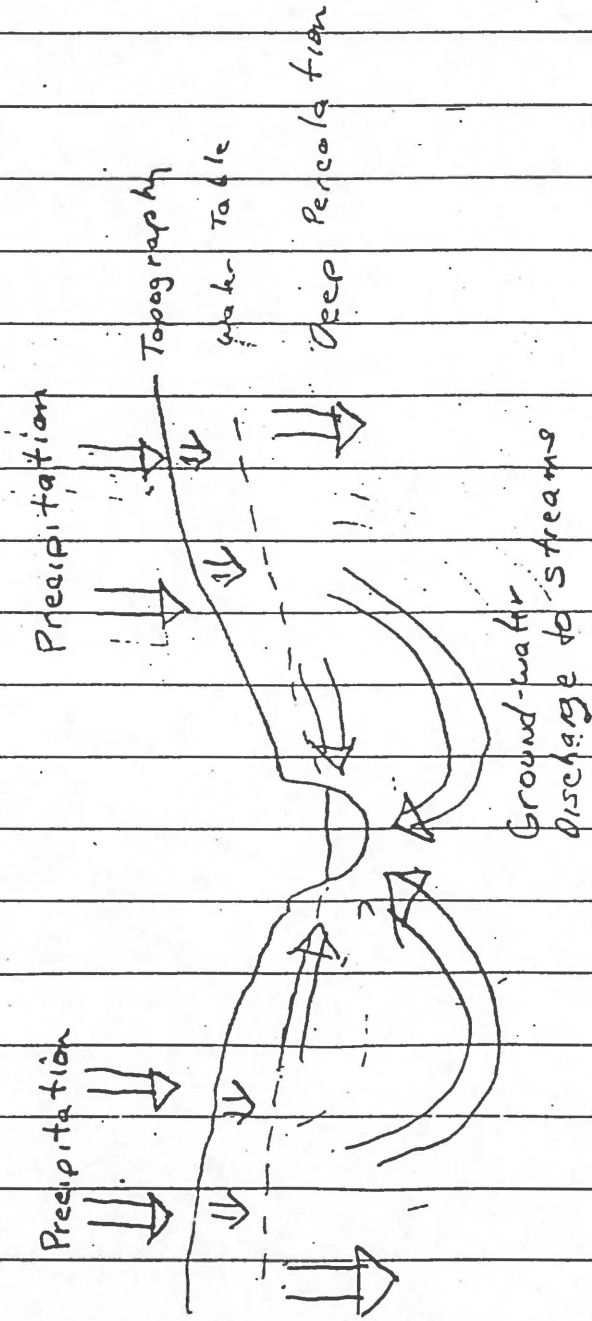 Precipitation
Precipitation
Topography
Water Table
Deep Percolation
Ground-water
Discharge to streams